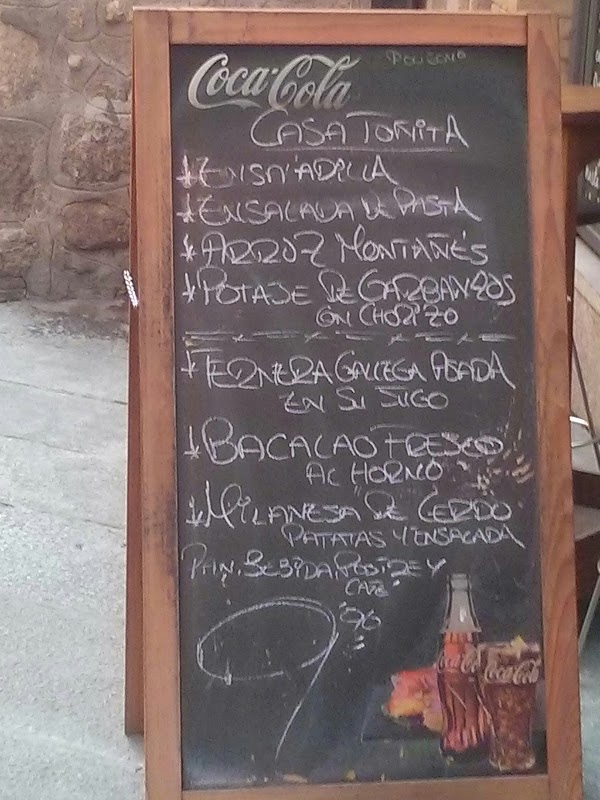 Coca-Cola
CASA TOÑITA
*ENSALADILLA
*ENSALADA DE PASTA
*ARROZ MONTAÑÉS
*POTAJE DE GARBANZOS
CON CHORIZO
*TERNERA GALLEGA ASADA
EN SU JUGO
*BACALAO FRESCO
AL HORNO
*MILANESA DE CERDO
PATATAS Y ENSALADA
PAN, BEBIDA, POSTRE Y
CAFÉ
9'90
Coca-Cola
Coca-Cola